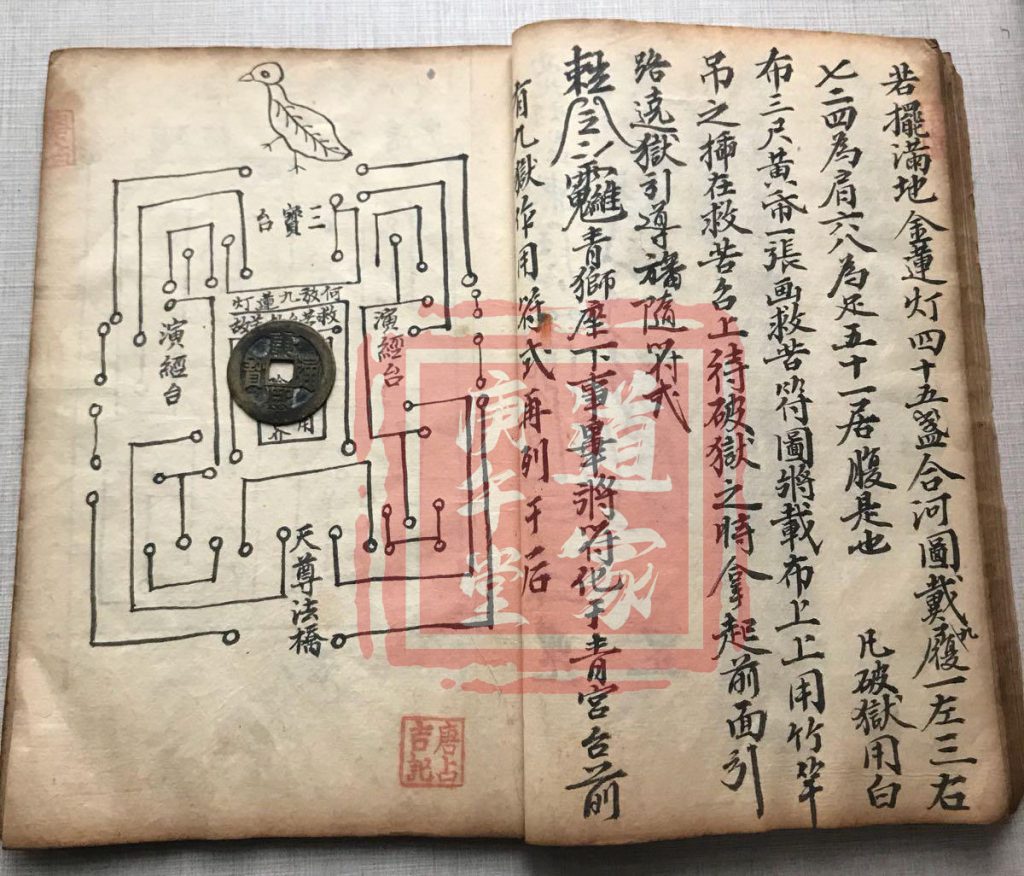 若擺滿地金蓮灯四十五盞合河圖戴九履一左三右
七二四為肩六八為足五十一居腹是也 凡破獄用白
布三尺黃帋一張画救苦符圖將載布上上用竹竿
吊之揷在救苦台上待破獄之時拿起前面引
路遶獄引導旛隨符式
青獅座下事畢將符化于青宮台前
有九獄作用符式再列于后
三寶台
演經台
演經台
九蓮灯
救苦
用
界
天尊法橋
道家
庚子堂
唐占吉記